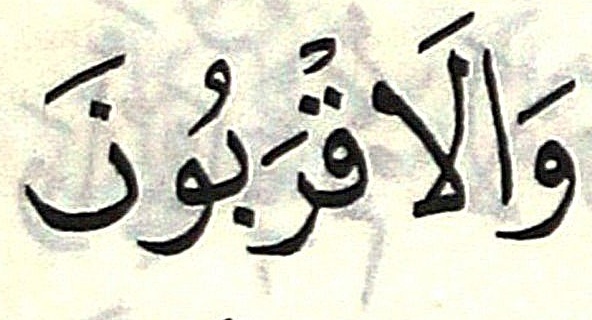 وَالَاقْرَبُونَ